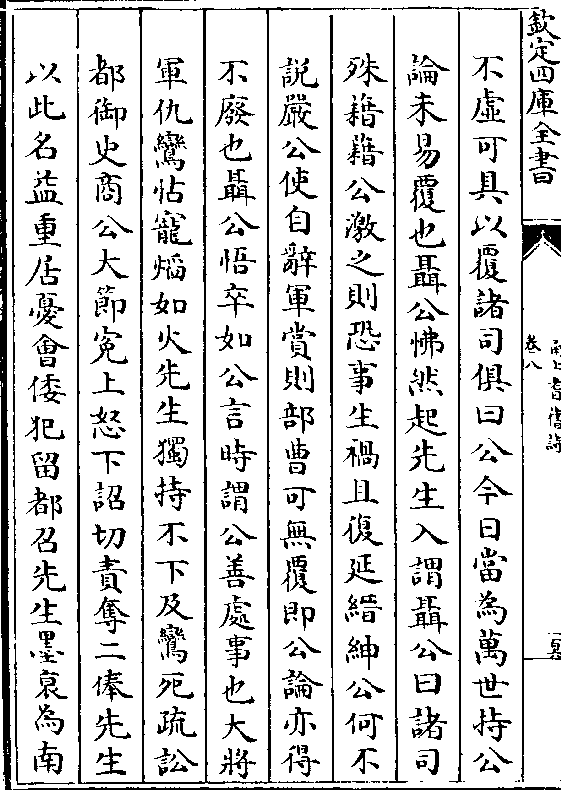 欽定四庫全書
卷八
不虛可具以覆諸司俱曰公今日當為萬世持公
論未易覆也聶公怫然起先生入謂聶公曰諸司
殊藉藉公激之則恐事生禍且復延縉紳公何不
說嚴公使自辭軍賞則部曹可無覆即公論亦得
不廢也聶公悟卒如公言時謂公善處事也大將
軍仇鸞怙寵熖如火先生獨持不下及鸞死疏訟
都御史商公大節寃上怒下詔切責奪二俸先生
以此名益重居憂會倭犯留都召先生墨衰為南